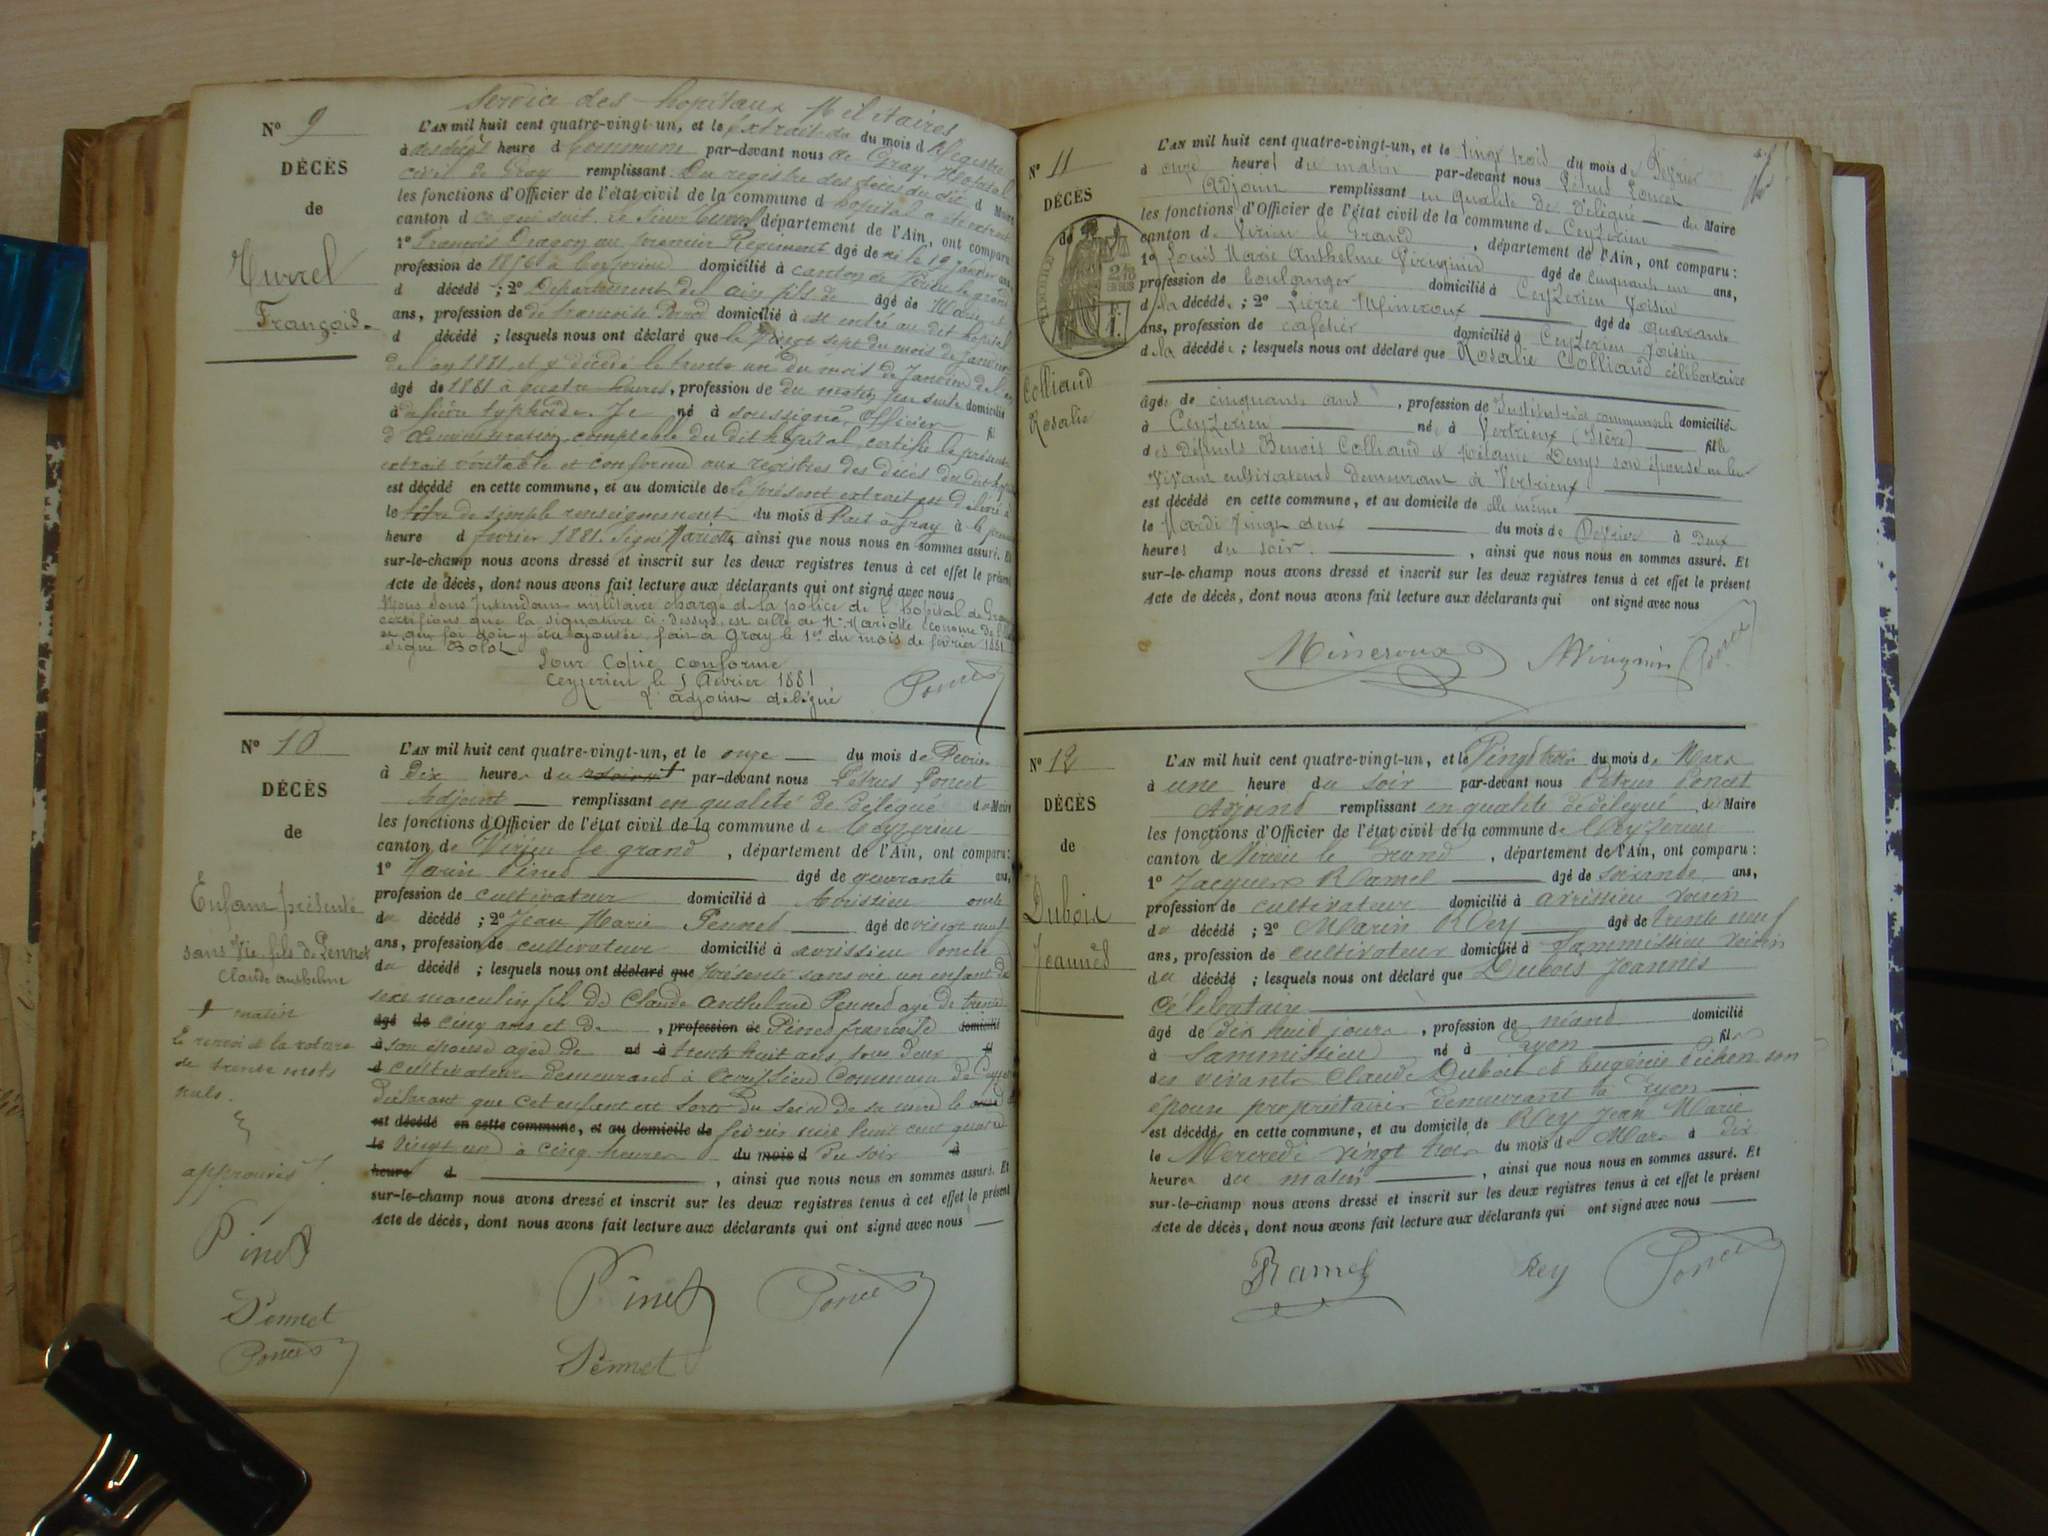 Service des hopitaux Militaires
N° 9
L'AN mil huit cent quatre-vingt-un, et le extrait du du mois d Registre
à des décès heure d Commune par-devant nous de Gray. Hopital
DÉCÈS
civil de Gray remplissant Du registre des décès du dit d Maire
les fonctions d'Officier de l'état civil de la commune d hopital a été extrait
de
canton d ce qui suit. Le Sieur département de l'Ain, ont comparu
1° François Dragon au premier Régiment âgé de né le 19 Janvier ans,
profession de 1856 à Ceyzerieu domicilié à canton de Virieu le grand
François
d décédé ; 2° Département de l'ain fils de âgé de Marie et
ans, profession de de francoise domicilié à est entré au dit hopital
d décédé ; lesquels nous ont déclaré que le Vingt sept du mois de Janvier
de l'an 1881, et y décédé le trente un du mois de Janvier de l'an
âgé de 1881 à quatre heures, profession de du matin par suite domicilié
à de fièvre typhoïde. Je né à soussigné, Officier fil
d'administration comptable du dit hopital, certifie le présent
extrait véritable et conforme aux registres des décès du dit hopital
est décédé en cette commune, et au domicile de le présent extrait est délivré à
le titre de simple renseignement du mois d Fait à Gray à le premier
heure d février 1881. Signé Mariotte, ainsi que nous nous en sommes assuré. Et
sur-le-champ nous avons dressé et inscrit sur les deux registres tenus à cet effet le présent
Acte de décès, dont nous avons fait lecture aux déclarants qui ont signé avec nous
Nous Sous Intendant militaire chargé de la police de l'hopital de Gray
certifions que la signature ci-dessus est celle de Mr Mariotte économe de
et que foi doit y être ajoutée. fait à Gray le 1er du mois de fevrier 1881
Signé Bolot
Pour Copie Conforme
Ceyzerieu le 5 fevrier 1881
L'adjoint délégué
Poncet
N° 10
L'AN mil huit cent quatre-vingt-un, et le onze du mois de Fevrier
à Dix heures du par-devant nous Pétrus Poncet
DÉCÈS
Adjoint remplissant en qualité de Délégué du Maire
les fonctions d'Officier de l'état civil de la commune de Ceyzerieu
de
canton de Virieu le grand, département de l'Ain, ont comparu :
1° Marin Pinet âgé de quarante ans,
profession de cultivateur domicilié à Avrissieu oncle
Enfant présenté
du décédé ; 2° Jean Marie Pennet âgé de vingt neuf
sans Vie fils de Pennet
ans, profession de cultivateur domicilié à avrissieu oncle
Claude anthelme
du décédé ; lesquels nous ont déclaré que présenté sans vie un enfant du
sexe masculin fils de Claude anthelme Pennet age de trente
+ matin
âgé de cinq ans et de, profession de Pinet françoise domicilié
Le renvoi et la rature
à son épouse agée de né à trente huit ans, tous deux fil
de trente mots
d cultivateurs demeurand à avrissieu commune de Ceyzerieu
nuls.
déclarant que cet enfant est sorti du sein de sa mère le
est décédé en cette commune, et au domicile de février mil huit cent quatre
le vingt un à cinq heures du mois d du soir à
approuvés
heure d, ainsi que nous nous en sommes assuré. Et
sur-le-champ nous avons dressé et inscrit sur les deux registres tenus à cet effet le présent
Acte de décès, dont nous avons fait lecture aux déclarants qui ont signé avec nous
Pinet
Pennet
Poncet
Pinet Poncet
Pennet
N° 11
L'AN mil huit cent quatre-vingt-un, et le vingt trois du mois de Fevrier
à onze heures du matin par-devant nous Pétrus Poncet
DÉCÈS
Adjoint remplissant en qualité de Délégué du Maire
les fonctions d'Officier de l'état civil de la commune de Ceyzerieu
de
canton de Virieu le Grand, département de l'Ain, ont comparu :
1° Louis Marie Anthelme Vinugnin âgé de cinquante un ans,
profession de boulanger domicilié à Ceyzerieu Voisin
d la décédée ; 2° Pierre Mineroux âgé de quarante
ans, profession de cafetier domicilié à Ceyzerieu voisin
d la décédée ; lesquels nous ont déclaré que Rosalie Colliand célibataire
Colliand
Rosalie
âgée de cinquante ans, profession de Institutrice communale domiciliée
à Ceyzerieu née à Vertrieux (Isère) fille
des Défunts Benoit Colliand et Mélanie Denys son épouse en leur
vivant cultivateurs demeurant à Vertrieux.
est décédé en cette commune, et au domicile de elle même
le Mardi vingt deux du mois de Fevrier à Deux
heures du soir., ainsi que nous nous en sommes assuré. Et
sur-le-champ nous avons dressé et inscrit sur les deux registres tenus à cet effet le présent
Acte de décès, dont nous avons fait lecture aux déclarants qui ont signé avec nous
Mineroux Poncet
N° 12
L'AN mil huit cent quatre-vingt-un, et le Vingt trois du mois de Mars
à une heure du soir par-devant nous Pétrus Poncet
DÉCÈS
Adjoint remplissant en qualité de délégué du Maire
les fonctions d'Officier de l'état civil de la commune de Ceyzerieu
de
canton de Virieu le Grand, département de l'Ain, ont comparu :
1° Jacques Ramel âgé de soixante ans,
Dubois
profession de cultivateur domicilié à avrissieu voisin
du décédé ; 2° Marin Rey âgé de trente neuf
Joannès
ans, profession de cultivateur domicilié à Sammissieu voisin
du décédé ; lesquels nous ont déclaré que Dubois Joannès
Célebataire
âgé de dix huit jours, profession de néant domicilié
à Sammissieu né à Lyon fils
des vivants Claude Dubois et Eugénie son
épouse propriétaires demeurant à Lyon
est décédé en cette commune, et au domicile de Rey Jean Marie
le Mercredi vingt trois du mois de Mars à dix
heures du matin, ainsi que nous nous en sommes assuré. Et
sur-le-champ nous avons dressé et inscrit sur les deux registres tenus à cet effet le présent
Acte de décès, dont nous avons fait lecture aux déclarants qui ont signé avec nous
Ramel Rey Poncet